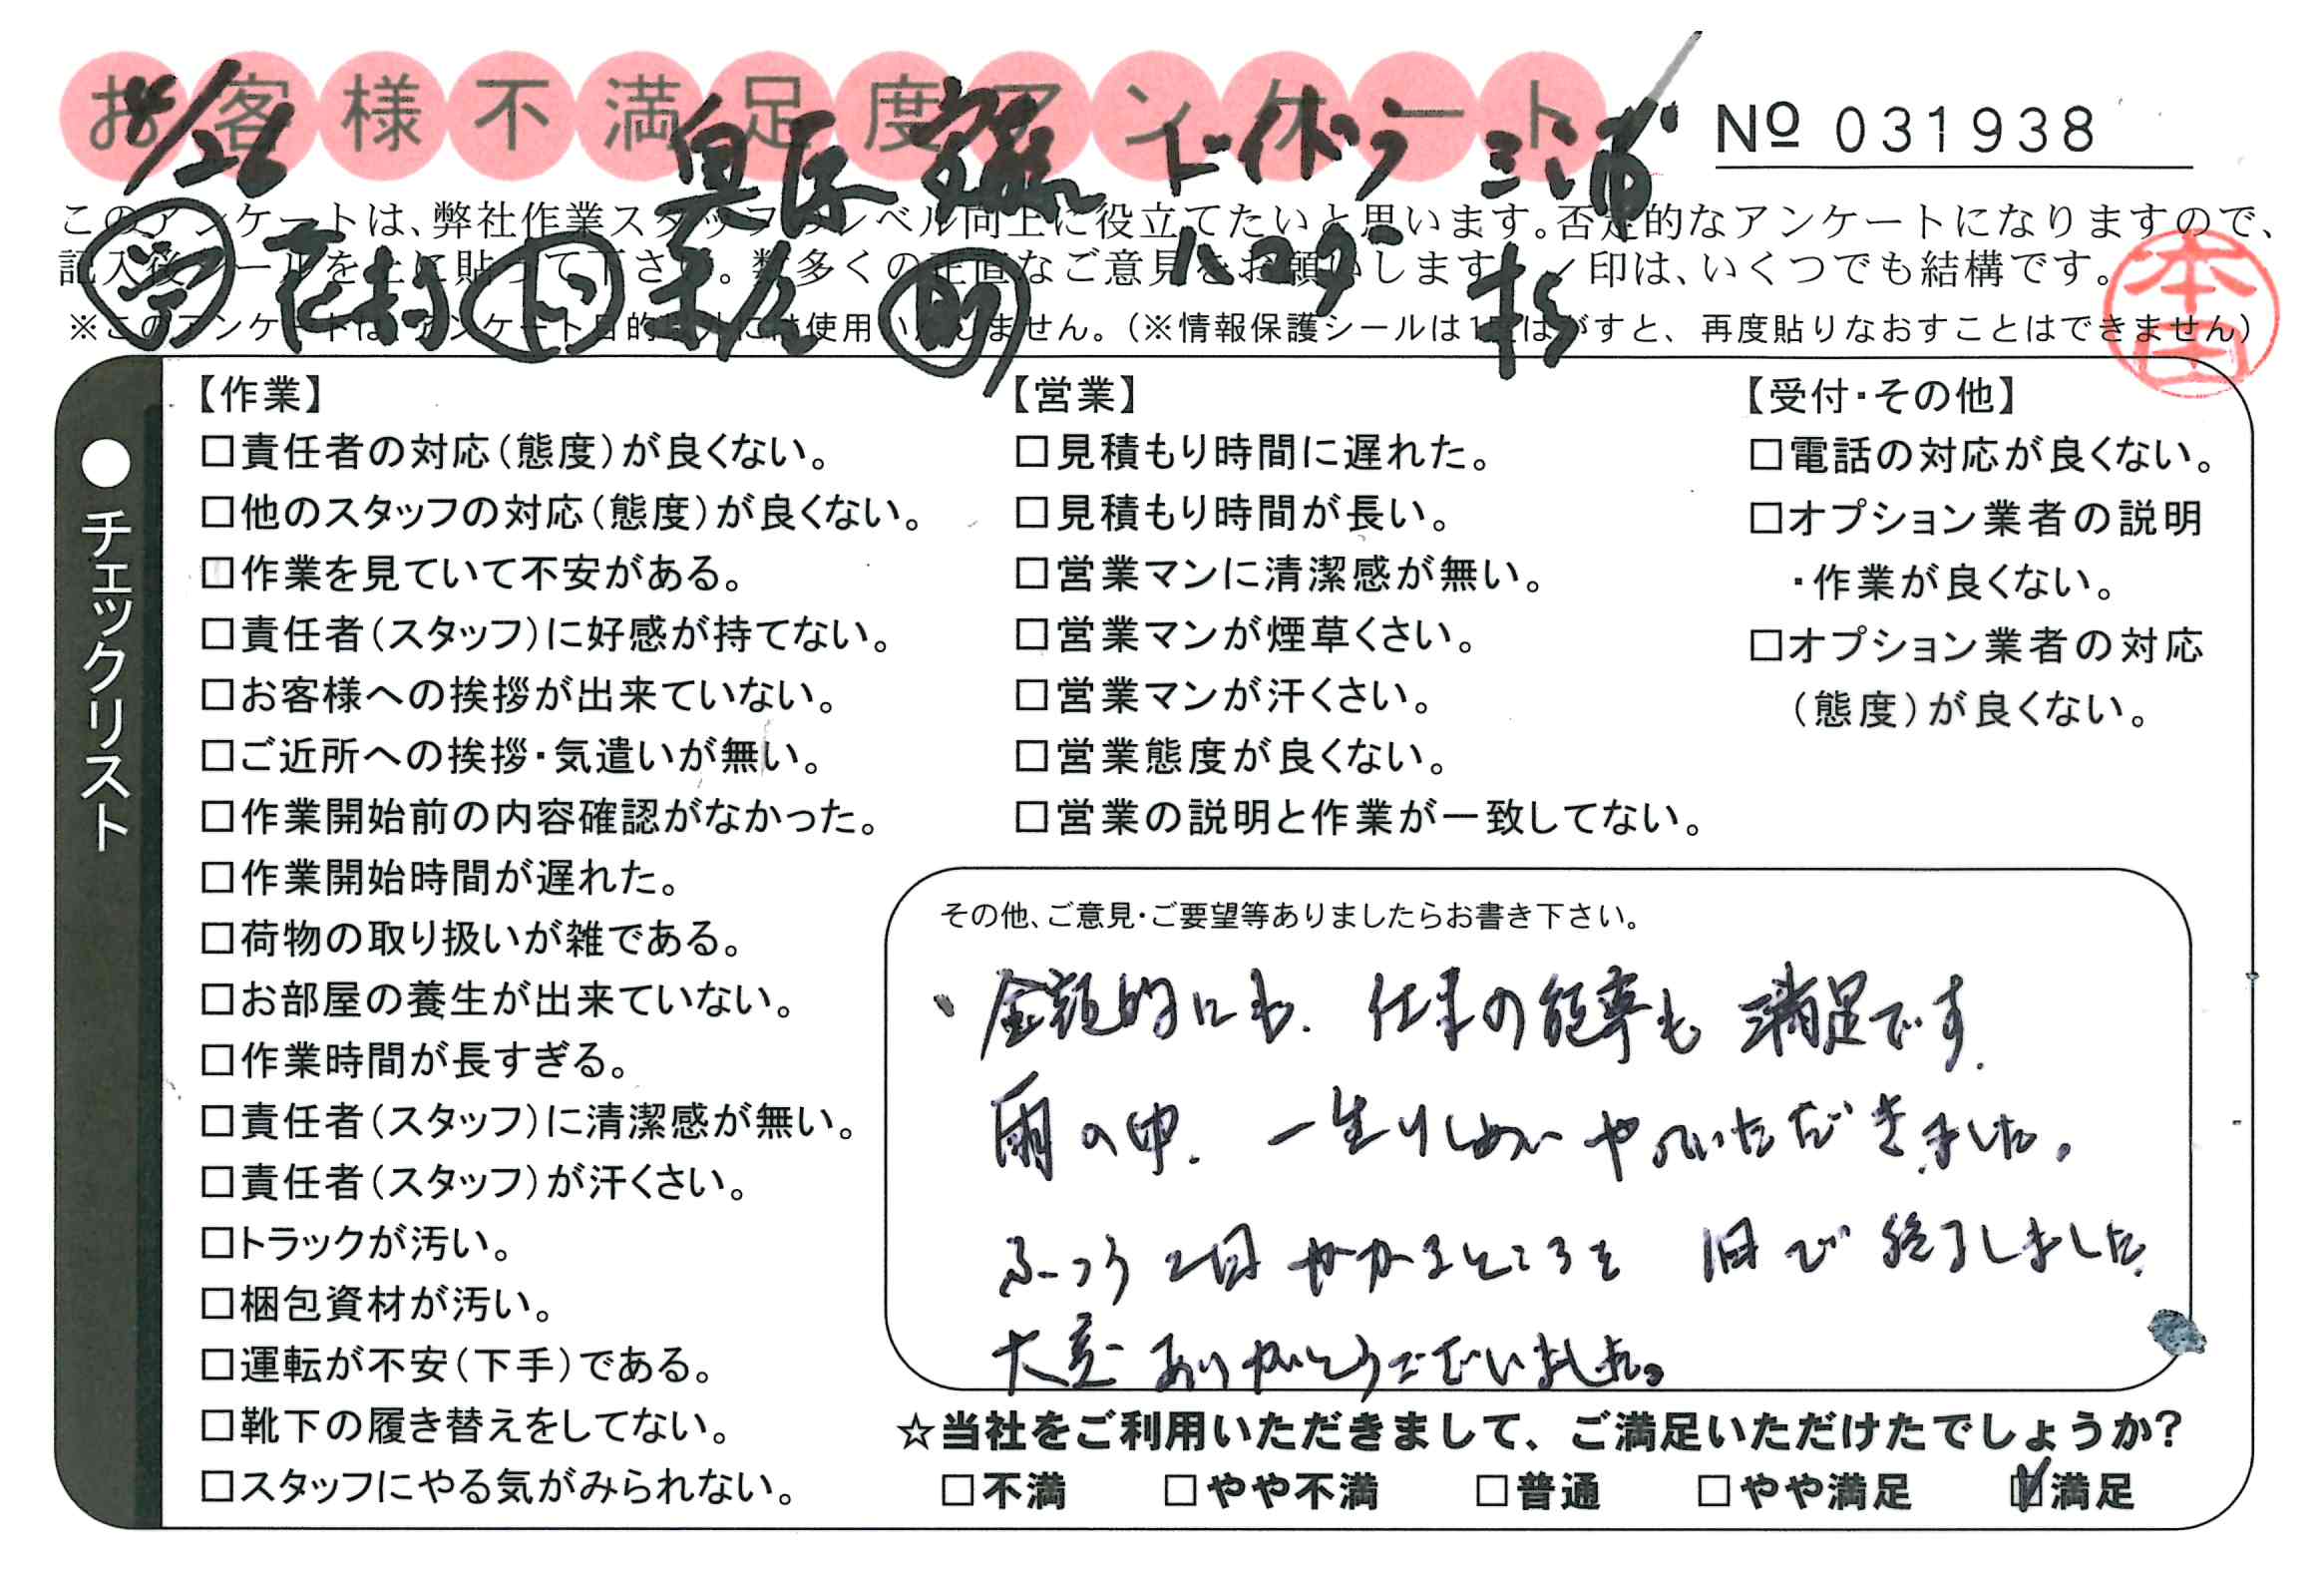 お客様不満足度アンケート
№ 031938
/26
三浦
このアンケートは、弊社作業スタッフのレベル向上に役立てたいと思います。否定的なアンケートになりますので、
記入後シールを上に貼って下さい。数多くの正直なご意見をお願いします。✓印は、いくつでも結構です。
※このアンケートは、アンケート目的以外には使用いたしません。（※情報保護シールは1度はがすと、再度貼りなおすことはできません）
営 花村 ト 助 ハコダ 杉
本田
●チェックリスト
【作業】
□責任者の対応（態度）が良くない。
□他のスタッフの対応（態度）が良くない。
□作業を見ていて不安がある。
□責任者（スタッフ）に好感が持てない。
□お客様への挨拶が出来ていない。
□ご近所への挨拶・気遣いが無い。
□作業開始前の内容確認がなかった。
□作業開始時間が遅れた。
□荷物の取り扱いが雑である。
□お部屋の養生が出来ていない。
□作業時間が長すぎる。
□責任者（スタッフ）に清潔感が無い。
□責任者（スタッフ）が汗くさい。
□トラックが汚い。
□梱包資材が汚い。
□運転が不安（下手）である。
□靴下の履き替えをしてない。
□スタッフにやる気がみられない。
【営業】
□見積もり時間に遅れた。
□見積もり時間が長い。
□営業マンに清潔感が無い。
□営業マンが煙草くさい。
□営業マンが汗くさい。
□営業態度が良くない。
□営業の説明と作業が一致してない。
【受付・その他】
□電話の対応が良くない。
□オプション業者の説明
・作業が良くない。
□オプション業者の対応
（態度）が良くない。
その他、ご意見・ご要望等ありましたらお書き下さい。
、金額的にも、仕事の能率も満足です。
雨の中、一生けんめい やっていただきました。
ふつう2日かかるところを 1日で終了しました
大変ありがとうございました。
☆当社をご利用いただきまして、ご満足いただけたでしょうか？
□不満 □やや不満 □普通 □やや満足 ☑満足